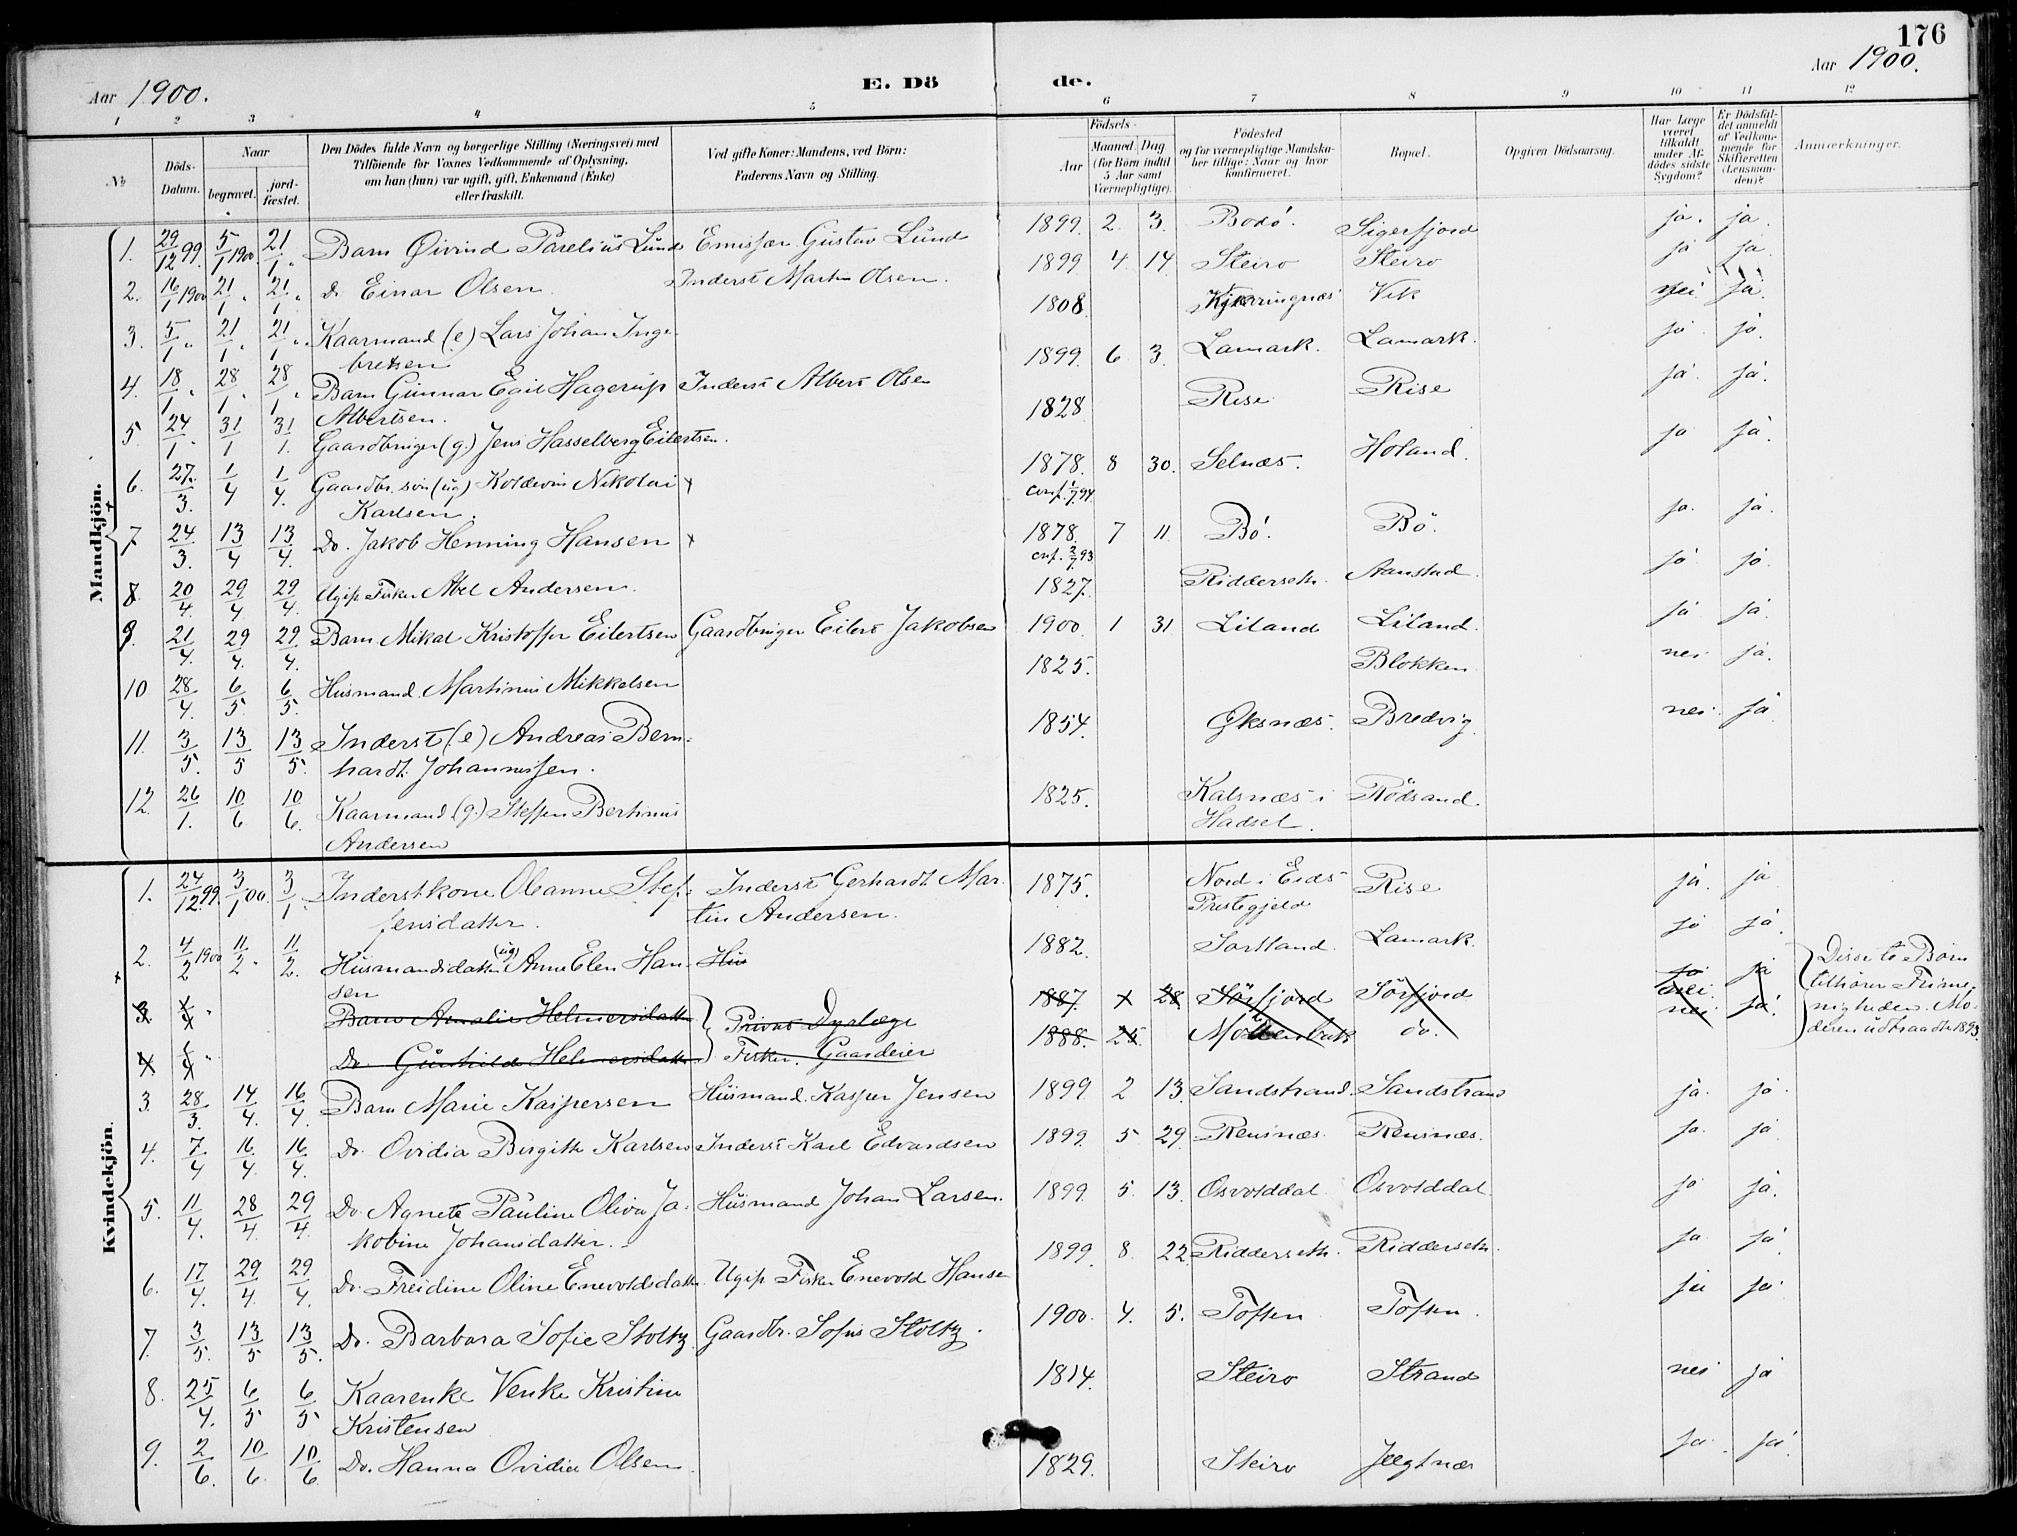 176
Aar 1900.
E. Döde.
Aar 1900.
1 2 3 4 5 6 7 8 9 10 11 12
No
Döds-Datum.
Naar
begravet.
jord-fæstet.
Den Dödes fulde Navn og borgerlige Stilling (Næringsvei) med
Tilföiende for Voxnes Vedkommende af Oplysning,
om han (hun) var ugift, gift, Enkemand (Enke)
eller fraskilt.
Ved gifte Koner: Mandens, ved Börn:
Faderens Navn og Stilling.
Födsels-
Aar
Maaned. Dag
(for Börn indtil
5 Aar samt
Værnepligtige).
Födested
og for værnepligtige Mandska-
ber tillige: Naar og hvor
konfirmeret.
Bopæl.
Opgiven Dödsaarsag.
Har Læge
været
tilkaldt
under Af-
dödes sidste
Sygdom?
Er Dödsfal-
det anmeldt
af Vedkom-
mende for
Skifteretten
(Lensman-
den)?
Anmærkninger.
Mandkjön.
1. 29/12 99. 5/1 1900 21/1 " Barn Øivind Parelius Lund Emissær Gustav Lund 1899. 2. 3. Bodö. Sigerfjord ja. ja.
2. 16/1 1900 21/1 " 21/1 " Do Einar Olsen. Inderst Martin Olsen. 1899 4 14 Steiro Steiro ja ja
3. 5/1 " 21/1 " 21/1 " Kaarmand (e) Lars Johan Inge-
bretsen 1808. Kjærringnæs Vik nei ja.
4. 18/1 " 28/1 " 28/1 " Barn Gunnar Egil Hagerup Inderst Albert Olsen 1899. 6 3. Lamark. Lamark. ja. ja.
Albertsen.
5. 24/1 " 31/1 31/1. Gaardbruger (g.) Jens Hasselberg Eilertsen. 1828 Rise Rise ja. ja.
6. 27/3. 1/4 1/4. Gaardbr. søn (ug) Koldevin Nikolai + 1878. 8 30. Selnæs. Holand. ja ja.
Karlsen. conf. 1/7 94.
7 24/3. 13/4 13/4. Do. Jakob Henning Hansen + 1878. 7 11. Bö. Bö. ja. ja.
conf. 2/7 93
8 20/4. 29/4 29/4. Ugift Fisker Abel Andersen. 1827. Ridderseth. Aanstad. ja ja.
9. 21/4. 29/4. 29/4. Barn Mikal Kristoffer Eilertsen Gaardbruger Eilert Jakobsen 1900. 1 31. Liland Liland. ja ja.
10 28/4. 6/5. 6/5. Husmand. Martinus Mikkelsen 1825. Blokken. nei ja.
11. 3/5. 13/5 13/5. Inderst (e) Andreas Bern-
hardt Johannessen. 1854. Øksnæs. Bredvig. nei. ja
12. 26/1. 10/6 10/6. Kaarmand (g.) Steffen Bertinus
Andersen 1825. Kalsnæs i Rödsand.
Hadsel.
Kvindekjön.
1. 27/12 99. 3/1 00. 3/1. Inderstkone Oleanne Stef-
fensdatter. Inderst Gerhardt Mar-
tin Andersen. 1875. Nord i Eids Rise ja. ja
Prestegjeld
2. 4/2 1900 11/2 " 11/2. Husmandsdatter (ug) Anne Elen Han-
sen Hus 1882. Sortland. Lamark. ja ja.
3. Barn Amalie Helmersdatter Privat Dyrlæge 1887. 28. Sörfjord Sörfjord nei ja
4 Do. Gunhilde Helmersdatter Fisker. Gaardeier 1888. 25. do. nei ja.
Disse to Børn
tilhører Frime-
nigheden. Mo-
deren udtraadte 1893.
3. 28/3. 14/4. 16/4. Barn Marie Kaspersen Husmand. Kasper Jensen 1899 2 13. Sandstrand. Sandstrand ja. ja.
4. 7/4 16/4. 16/4. Do. Ovidia Birgitte Karlsen Inderst Karl Edvardsen 1899. 5 29. Rensnæs. Rensnæs. ja. ja
5. 11/4. 28/4 29/4 Do. Agnete Pauline Oliva Ja-
kobine Johansdatter. Husmand Johan Larsen. 1899. 5. 13. Osvolddal. Osvolddal ja ja.
6. 17/4. 29/4. 29/4. Do. Freidine Oline Enevoldsdatter. Ugift Fisker Enevold Hansen 1899. 8. 22 Ridderseth. Ridderseth. ja ja.
7. 3/5. 13/5 13/5. Do. Barbara Sofie Stoltz. Gaardbr. Sofus Stoltz. 1900. 4. 5. Toften Toften. ja
8. 25/4. 6/5 6/5 Kaarenke Venke Kristine
Kristensen 1814. Steiro Strand nei ja
9. 2/6. 10/6. 10/6. Do. Hanna Ovidia Olsen. 1829. Steiro Jægtnæs ja. ja.